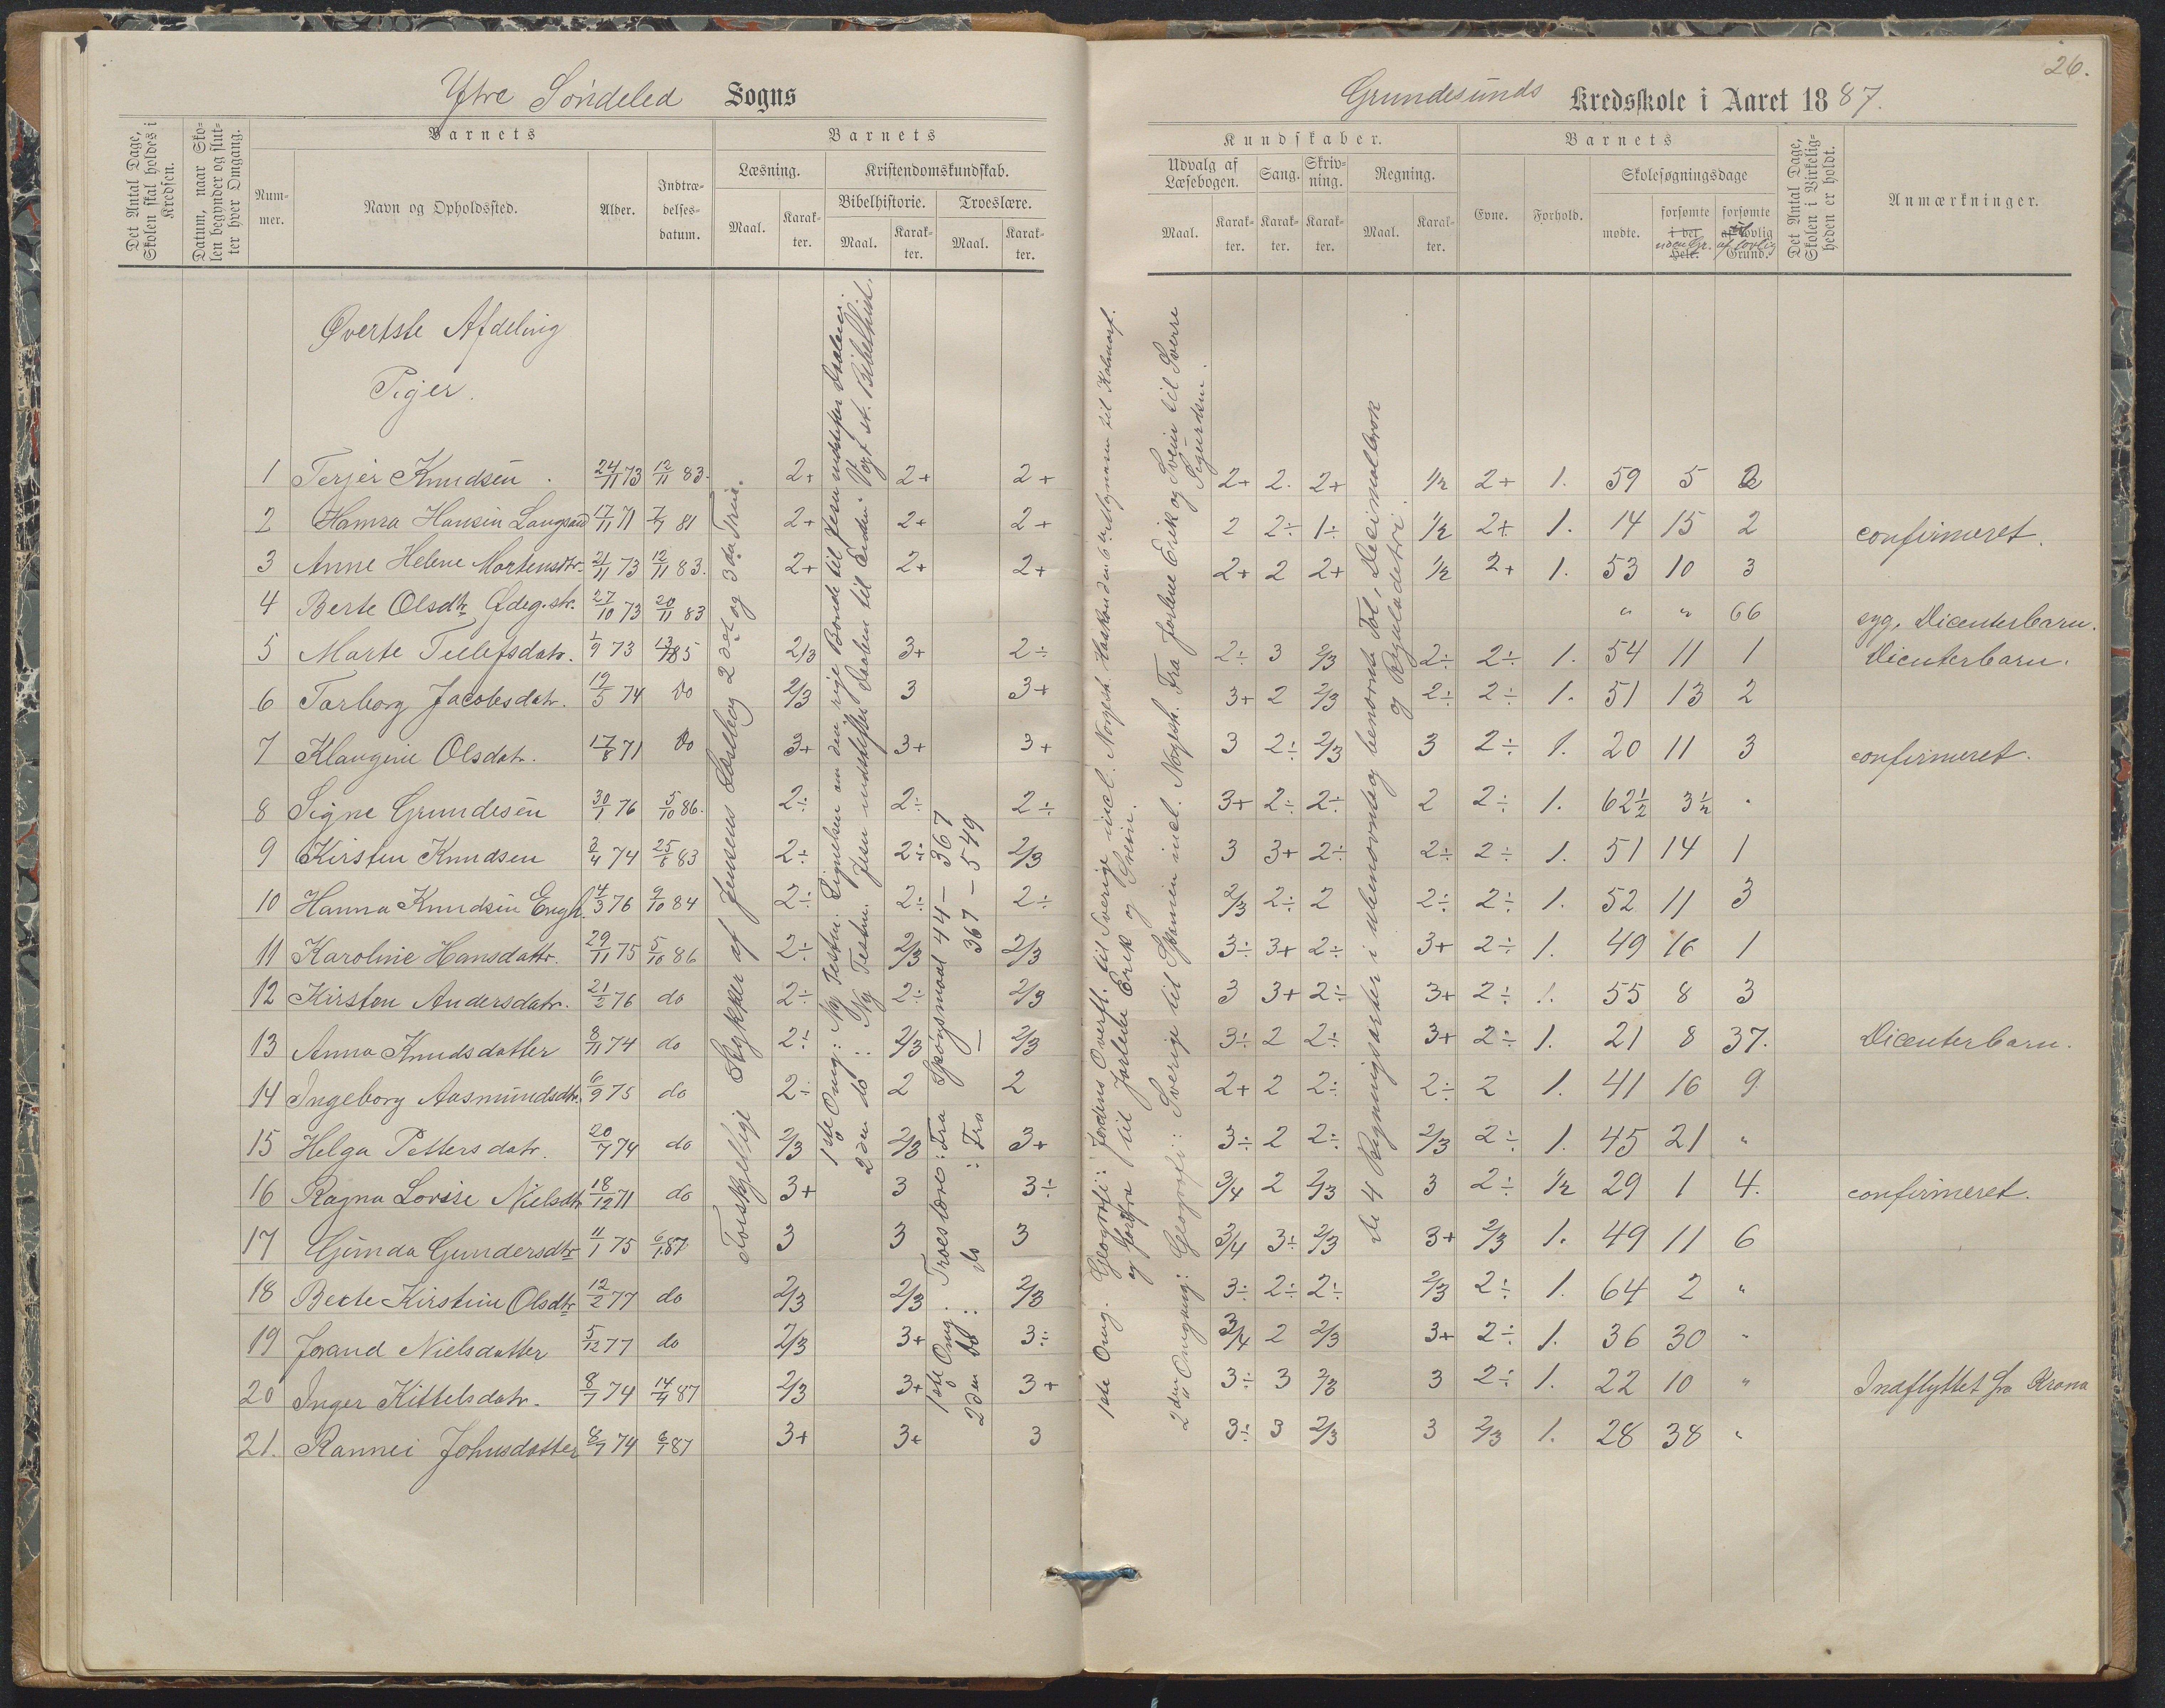 Ytre Söndeled Sogns
Det Antal Dage, Skolen skal holdes i Kredsen.
Datum, naar Skolen begynder og slutter hver Omgang.
Barnets
Nummer.
Navn og Opholdssted.
Alder.
Indtrædelsesdatum.
Barnets
Læsning.
Maal.
Karakter.
Kristendomskundskab.
Bibelhistorie.
Maal.
Karakter.
Troeslære.
Maal.
Karakter.
Øverste Afdeling
Piger.
1 Terjer Knudsen . 24/11 73 12/11 83. 2+ 2+ 2+
2 Hanna Hansen 17/11 71 81 2+ 2+ 2+
3 Anne Helene Mortensdtr. 21/11 73 12/11 83. 2+ 2+ 2+
4 Berte Olsdtr 27/10 73 20/11 83
5 Marte Tellefsdatr. 1/9 73 85 2/3 3+ 2÷
6 Torborg Jacobsdatr. 19/5 74 do 2/3 3 3+
7 Klaugine Olsdatr. 71 Do 3+ 3+ 3+
8 Signe Grundesen 30/1 76 5/10 86. 2÷ 2÷ 2÷
9 Kirsten Knudsen 74 83 2÷ 2÷ 2/3
10 Hanna Knudsen 76 9/10 84 2÷ 2÷ 2÷
11 Karoline Hansdattr. 29/11 75 5/10 86 2÷ 2/3 2/3
12 Kirsten Andersdatr. 21/2 76 do 2÷ 2÷ 2/3
13 Anna Knudsdatter 8/11 74 do 2÷ 2/3 2/3
14 Ingeborg Aasmundsdtr. 6/9 75 do 2÷ 2 2
15 Helga Pettersdatr. 20/7 74 do 2/3 2/3 3+
16 Ragna Lovise Nielsdtr 18/12 71 do 3+ 3 3÷
17 Gunda Gundersdtr 11/1 75 6/1 87 3 3 3
18 Berte Kirstine Olsdtr 12/2 77 do 2/3 2/3 2/3
19 Jorand Nielsdatter 5/12 77 do 2/3 3+ 3÷
20 Inger Kittelsdatr. 8/7 74 14/4 87 2/3 3+ 3+
21. Rannei Johnsdatter 8/9 74 87 3+ 3+ 3
Forskjellige Stykker af Jensens Læsebog 2det og 3die Trin.
1ste Omg: Ny Testm. Lignelsen om den rige Bonde til Jesu
2den do : Ny Testm. Jesu til Enden. Vogt st. Bibelhist.
1ste Omg. Troeslære: Fra Spörgsmaal 44 – 367
2den Do : do : Fra — 367 – 549
26.
Grundesunds Kredsskole i Aaret 1887.
Kundskaber.
Udvalg af Læsebogen.
Maal.
Karakter.
Sang.
Karakter.
Skrivning.
Karakter.
Regning.
Maal.
Karakter.
Barnets
Evne.
Forhold.
Skolesøgningsdage
mødte.
forsømte i det Hele. uden Gr.
forsømte af lovlig Grund.
Det Antal Dage, Skolen i Virkeligheden er holdt.
Anmærkninger.
1ste Omg. Geografi: Jordens Overfl. til Sverige incl. Norgesh. Haakon den til Kalmarf.
og forfra til Jarlerne Erik og Svein.
2den Omgang: Geografi: Sverige til Spanien incl. Norgesh. Fra Jarlene Erik og Svein til Sverre
Sigurdsen.
de 4 Regningsarter i ubenævnte og benævnte Tal, Decimalbrøk
og Reguladetri.
2+ 2. 2+ 1/2 2+ 1. 59 5 2
2 2÷ 1÷ 1/2 2+ 1. 14 15 2 confirmeret.
2+ 2 2+ 1/2 2+ 1. 53 10 3
" " 66 syg. Dicenterbarn.
2÷ 3 2/3 2÷ 2÷ 1. 54 11 1 Dicenterbarn.
3+ 2 2/3 2÷ 2÷ 1. 51 13 2
3 2÷ 2/3 3 2÷ 1. 20 11 3 confirmeret.
3+ 2÷ 2÷ 2 2÷ 1. 62½ 3½ "
3 3+ 2÷ 2÷ 2÷ 1. 51 14 1
2/3 2÷ 2 2÷ 2÷ 1. 52 11 3
3÷ 3+ 2÷ 3+ 2÷ 1. 49 16 1
3 3+ 2÷ 3+ 2÷ 1. 55 8 3
3÷ 2 2÷ 3+ 2÷ 1. 21 8 37. Dicenterbarn.
2+ 2 2÷ 2÷ 2 1. 41 16 9
3÷ 2 2÷ 2/3 2÷ 1. 45 21 "
3/4 2 2/3 3 2÷ 1/2 29 1 4. confirmeret.
3/4 3÷ 2/3 3+ 2/3 1. 49 11 6
3÷ 2÷ 2÷ 2/3 2÷ 1. 64 2 "
3/4 2 2/3 3+ 2÷ 1. 36 30 "
3÷ 3 2/3 3 2÷ 1. 22 10 " Indflyttet fra Krana
3÷ 3 2/3 3 2/3 1. 28 38 "